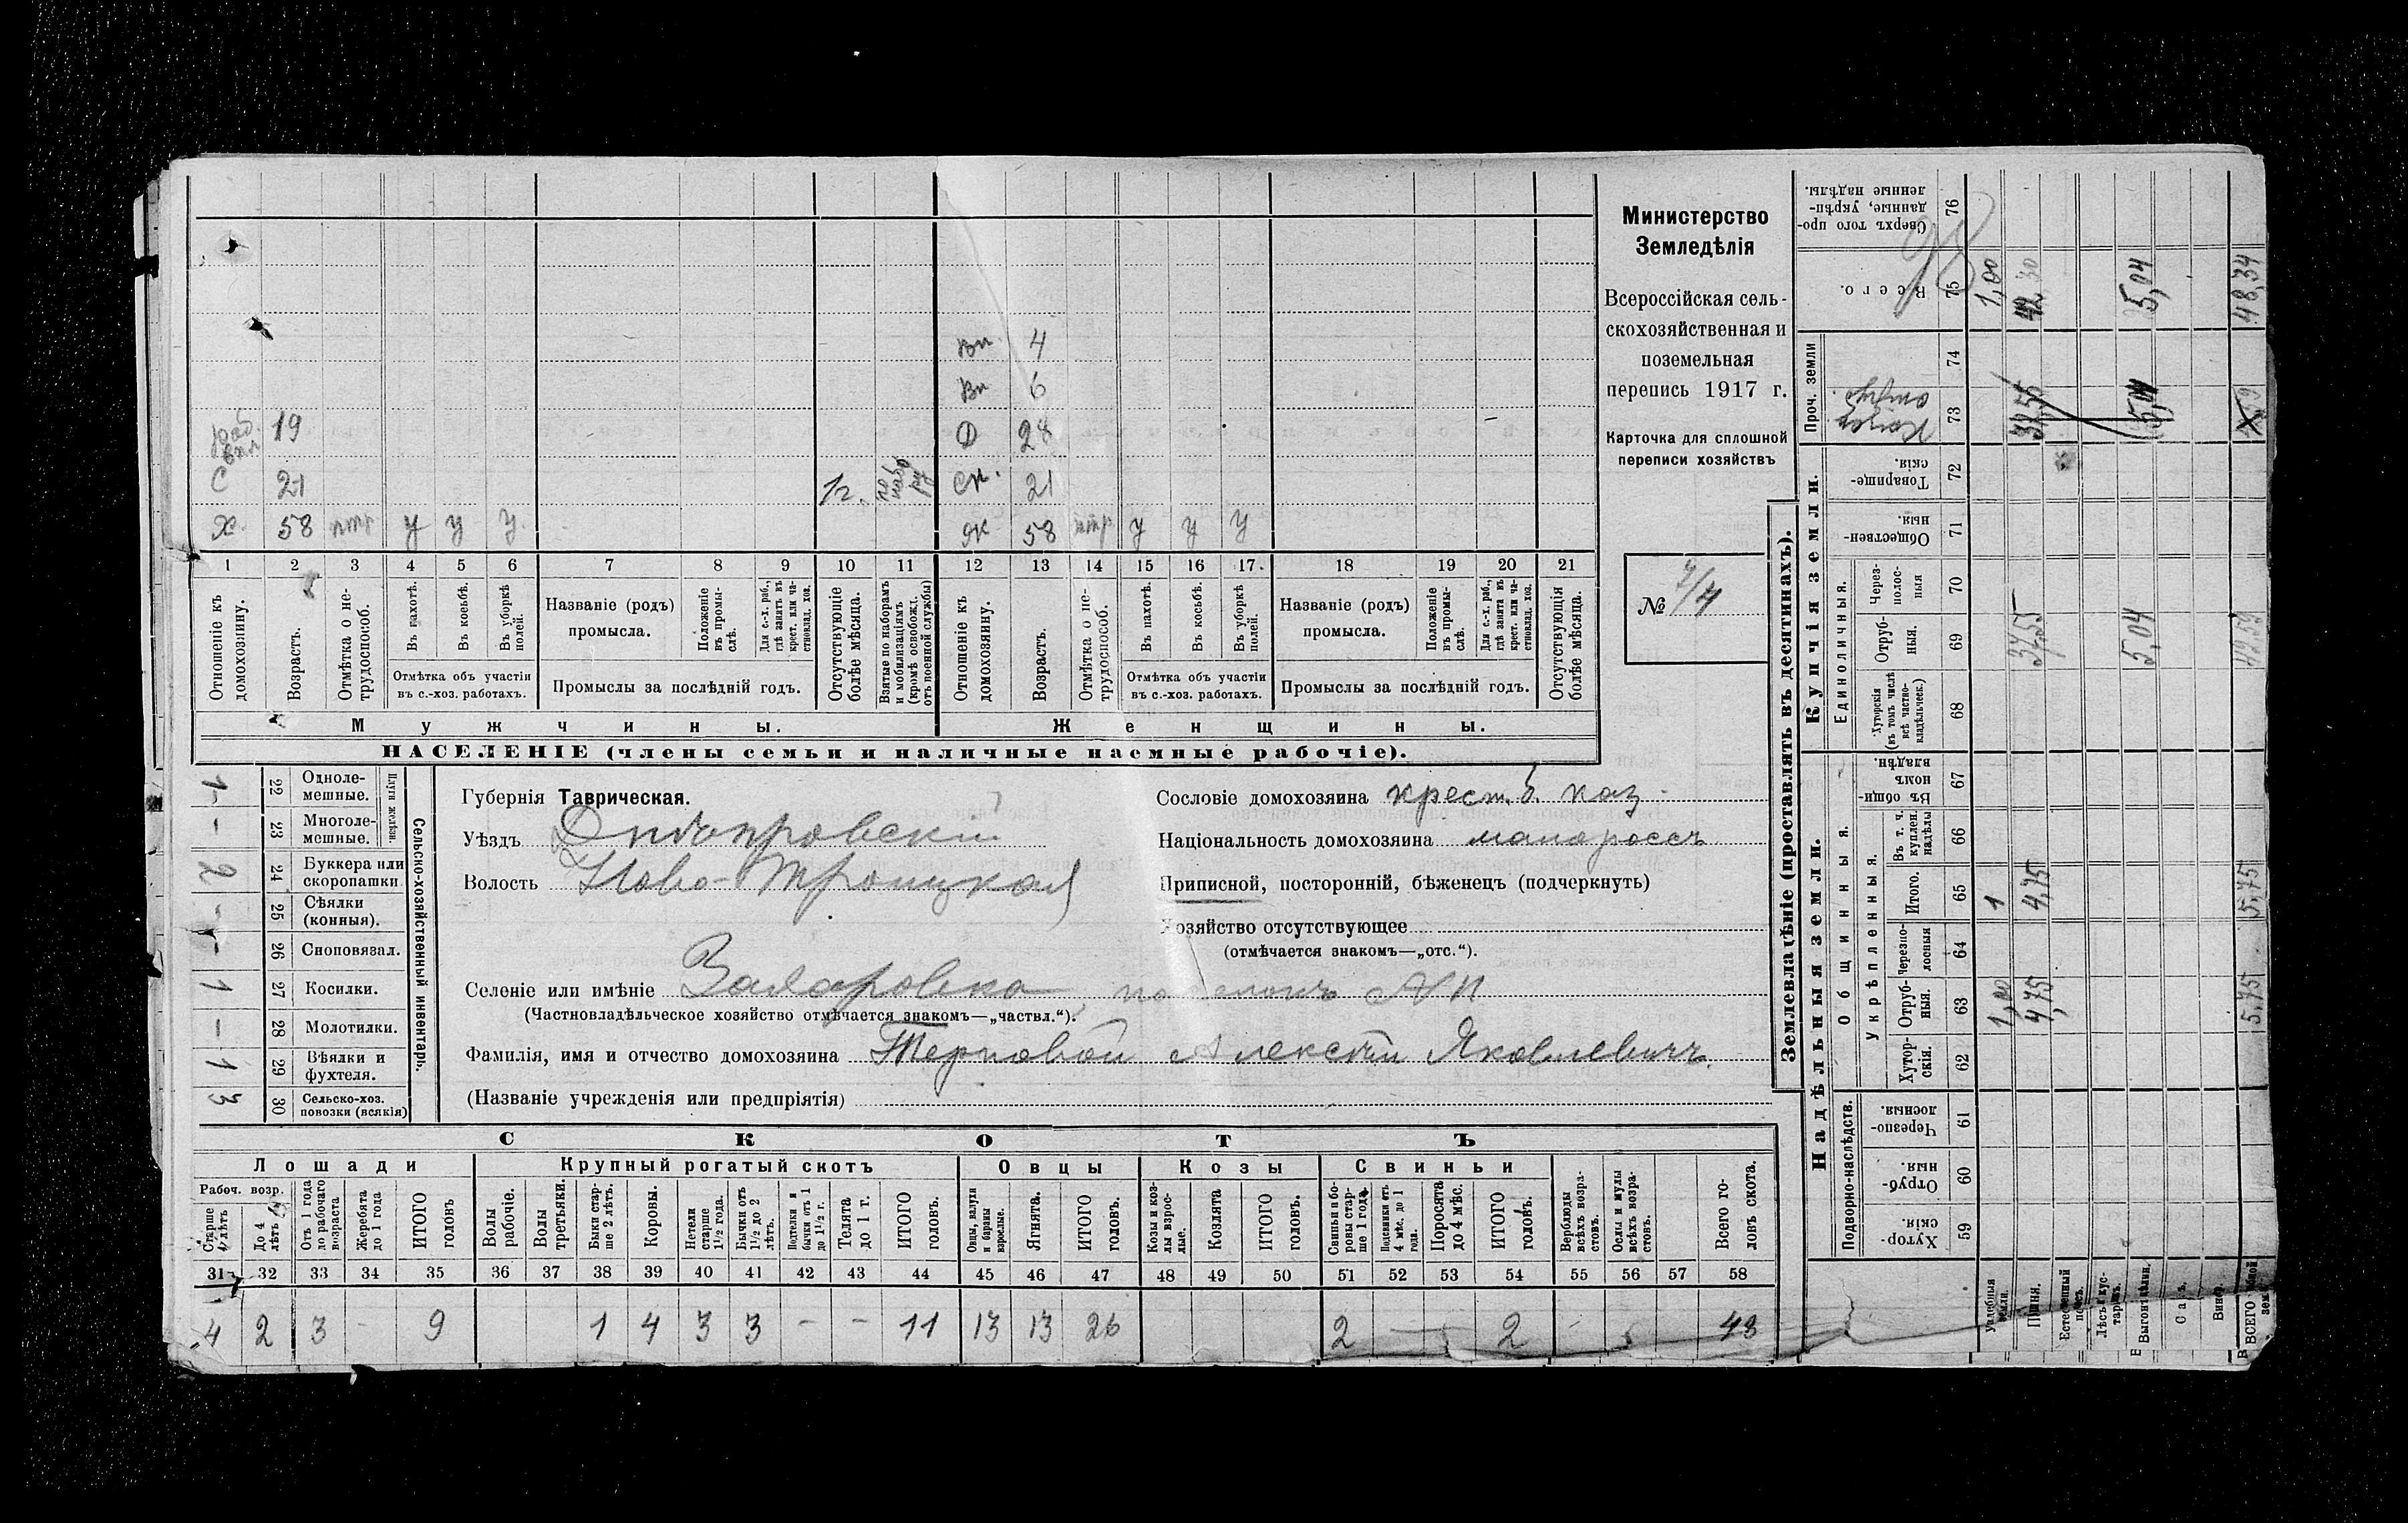 Вп. 4
Вп 6
раб. 19 Д 28
С 21 1 г. по набо ру Сн. 21
Х. 58 птр у у у ж 58 птр у у у
1 2 3 4 5 6 7 8 9 10 11 12 13 14 15 16 17. 18 19 20 21
Отношеніе къ домохозяину.
Возрастъ.
Отмѣтка о не-трудоспособ.
Въ пахотѣ.
Въ косьбѣ.
Въ уборкѣ полей.
Отмѣтка объ участіи въ с.-хоз. работахъ.
Названіе (родъ) промысла.
Положеніе въ промы-слѣ.
Для с.-х. раб., гдѣ занятъ въ крест. или ча-стновлад. хоз.
Промыслы за послѣдній годъ.
Отсутствующіе болѣе мѣсяца.
Взятые по наборамъ и мобилизаціямъ (кромѣ освобожд. отъ военной службы)
Отношеніе къ домохозяину.
Возрастъ.
Отмѣтка о не-трудоспособ.
Въ пахотѣ.
Въ косьбѣ.
Въ уборкѣ полей.
Отмѣтка объ участіи въ с.-хоз. работахъ.
Названіе (родъ) промысла.
Положеніе въ промы-слѣ.
Для с.-х. раб., гдѣ занята въ крест. или ча-стновлад. хоз.
Промыслы за послѣдній годъ.
Отсутствующія болѣе мѣсяца.
Мужчины. Женщины.
НАСЕЛЕНІЕ (члены семьи и наличные наемные рабочіе).
Министерство
Земледѣлія
Всероссійская сель-
скохозяйственная и
поземельная
перепись 1917 г.
Карточка для сплошной
переписи хозяйствъ
№ 7/4
Сельско-хозяйственный инвентарь.
Плуги желѣзн.
1 22 Одноле-мешные.
– 23 Многоле-мешные.
2 24 Буккера или скоропашки
– 25 Сѣялки (конныя).
– 26 Сноповязал.
1 27 Косилки.
– 28 Молотилки.
1 29 Вѣялки и фухтеля.
3 30 Сельско-хоз. повозки (всякія)
Губернія Таврическая.
Уѣздъ Днѣпровскій
Волость Ново-Троицкая
Селеніе или имѣніе Захаровка, поселокъ
(Частновладѣльческое хозяйство отмѣчается знакомъ—„частвл.“).
Фамилія, имя и отчество домохозяина Терновой Алексѣй Яковлевичъ.
(Названіе учрежденія или предпріятія)
Сословіе домохозяина крест. б. каз.
Національность домохозяина малороссъ
Приписной, посторонній, бѣженецъ (подчеркнуть)
Хозяйство отсутствующее
(отмѣчается знакомъ—„отс.“).
СКОТЪ
Лошади Крупный рогатый скотъ Овцы Козы Свиньи
Рабоч. возр.
Старше 4 лѣтъ
До 4 лѣтъ
Отъ 1 года до рабочаго возраста
Жеребята до 1 года
ИТОГО головъ
Волы рабочіе.
Волы третьяки.
Быки стар-ше 2 лѣтъ.
Коровы.
Нетели старше 1 1/2 года.
Бычки отъ 1 1/2 до 2 лѣтъ.
Подтелки и бычки отъ 1 до 1 1/2 г.
Телята до 1 г.
ИТОГО головъ.
Овцы, валухи и бараны взрослые.
Ягнята.
ИТОГО головъ.
Козы и коз-лы взрос-лые.
Козлята
ИТОГО головъ.
Свиньи и бо-ровы стар-ше 1 года.
Подсвинки отъ 4 мѣс. до 1 года.
Поросята до 4 мѣс.
ИТОГО головъ.
Верблюды всѣхъ возра-стовъ.
Ослы и мулы всѣхъ возра-стовъ.
Всего го-ловъ скота.
31 32 33 34 35 36 37 38 39 40 41 42 43 44 45 46 47 48 49 50 51 52 53 54 55 56 57 58
4 2 3 – 9 1 4 3 3 – – 11 13 13 26 2 – 2 – 48
Землевладѣніе (проставлять въ десятинахъ).
Надѣльныя земли. Купчія земли.
Проч. земли
Подворно-наслѣдств.
Общинныя.
Укрѣпленныя.
Единоличныя.
Хутор-скія. 59
Отруб-ныя. 60
Черезпо-лосныя. 61
Хутор-скія. 62
Отруб-ныя. 63 1,00 4,75 5,75
Черезпо-лосныя 64
Итого. 65 1 4,75 5,75
Въ т. ч. куплен. надѣлы 66
Въ общи-номъ владѣн. 67
Хуторскія (въ томъ числѣ всѣ частно-владѣльческ.) 68
Отруб-ныя. 69 37,55 5,04 42,59
Через-полос-ныя 70
Обществен-ныя. 71
Товарище-скія. 72
73 37,55 5,04
74
Всего. 75 1,00 42,30 5,04 48,34
Сверхъ того про-данные, укрѣп-ленные надѣлы. 76
Усадебныя земли.
Пашня.
Естественный покосъ.
Лѣсъ и кус-тарникъ.
Выгонъ
Садъ.
Виногр.
ВСЕГО